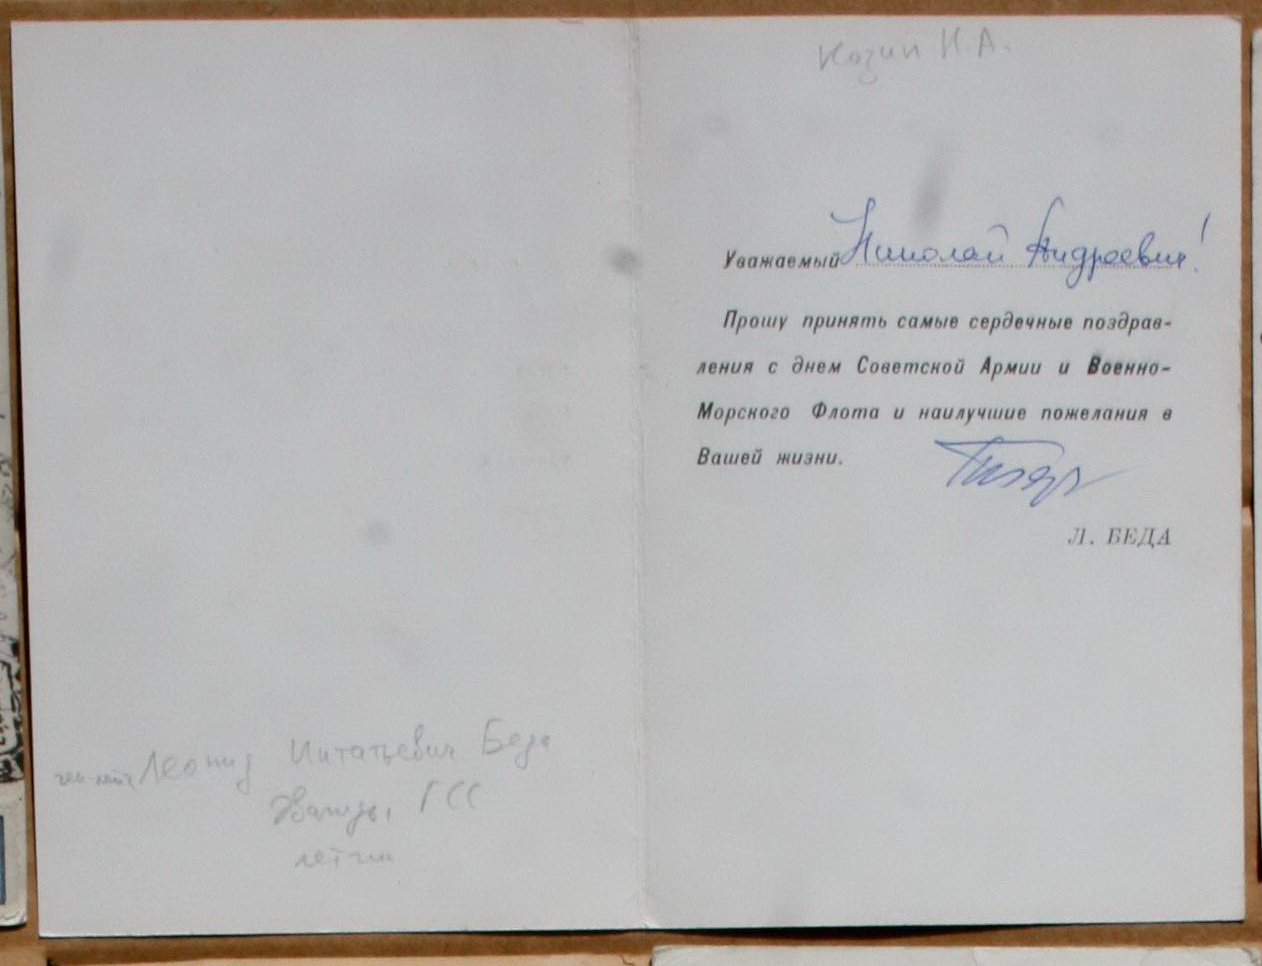 Козин Н.А.
Уважаемый Николай Андреевич!
Прошу принять самые сердечные поздрав-
ления с днем Советской Армии и Военно-
Морского Флота и наилучшие пожелания в
Вашей жизни.
Л. БЕДА
ген-лейт Леонид Игнатьевич Беда
Дважды ГСС
летчик